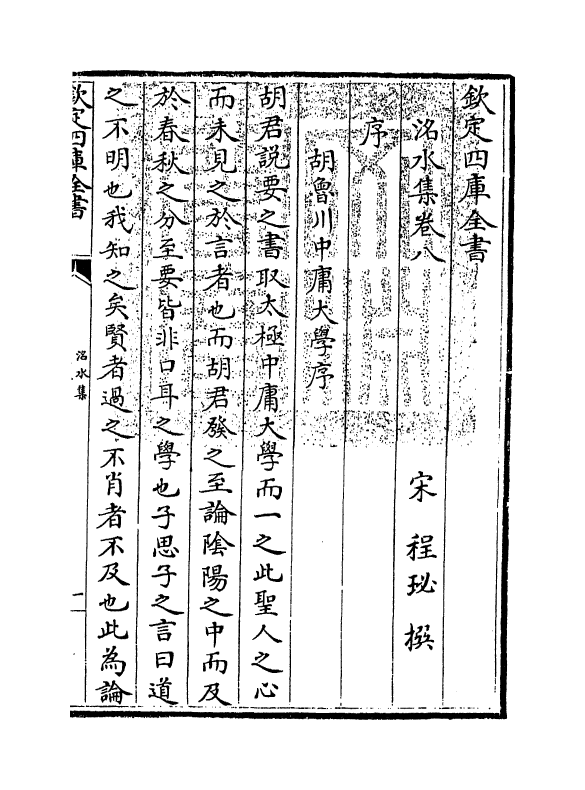 欽定四庫全書
洺水集卷八
宋 程珌 撰
序
胡魯川中庸大學序
胡君説要之書取太極中庸大學而一之此聖人之心
而未見之於言者也而胡君發之至論隂陽之中而及
於春秋之分至要皆非口耳之學也子思子之言曰道
之不明也我知之矣賢者過之不肖者不及也此為論
欽定四庫全書
洺水集
一